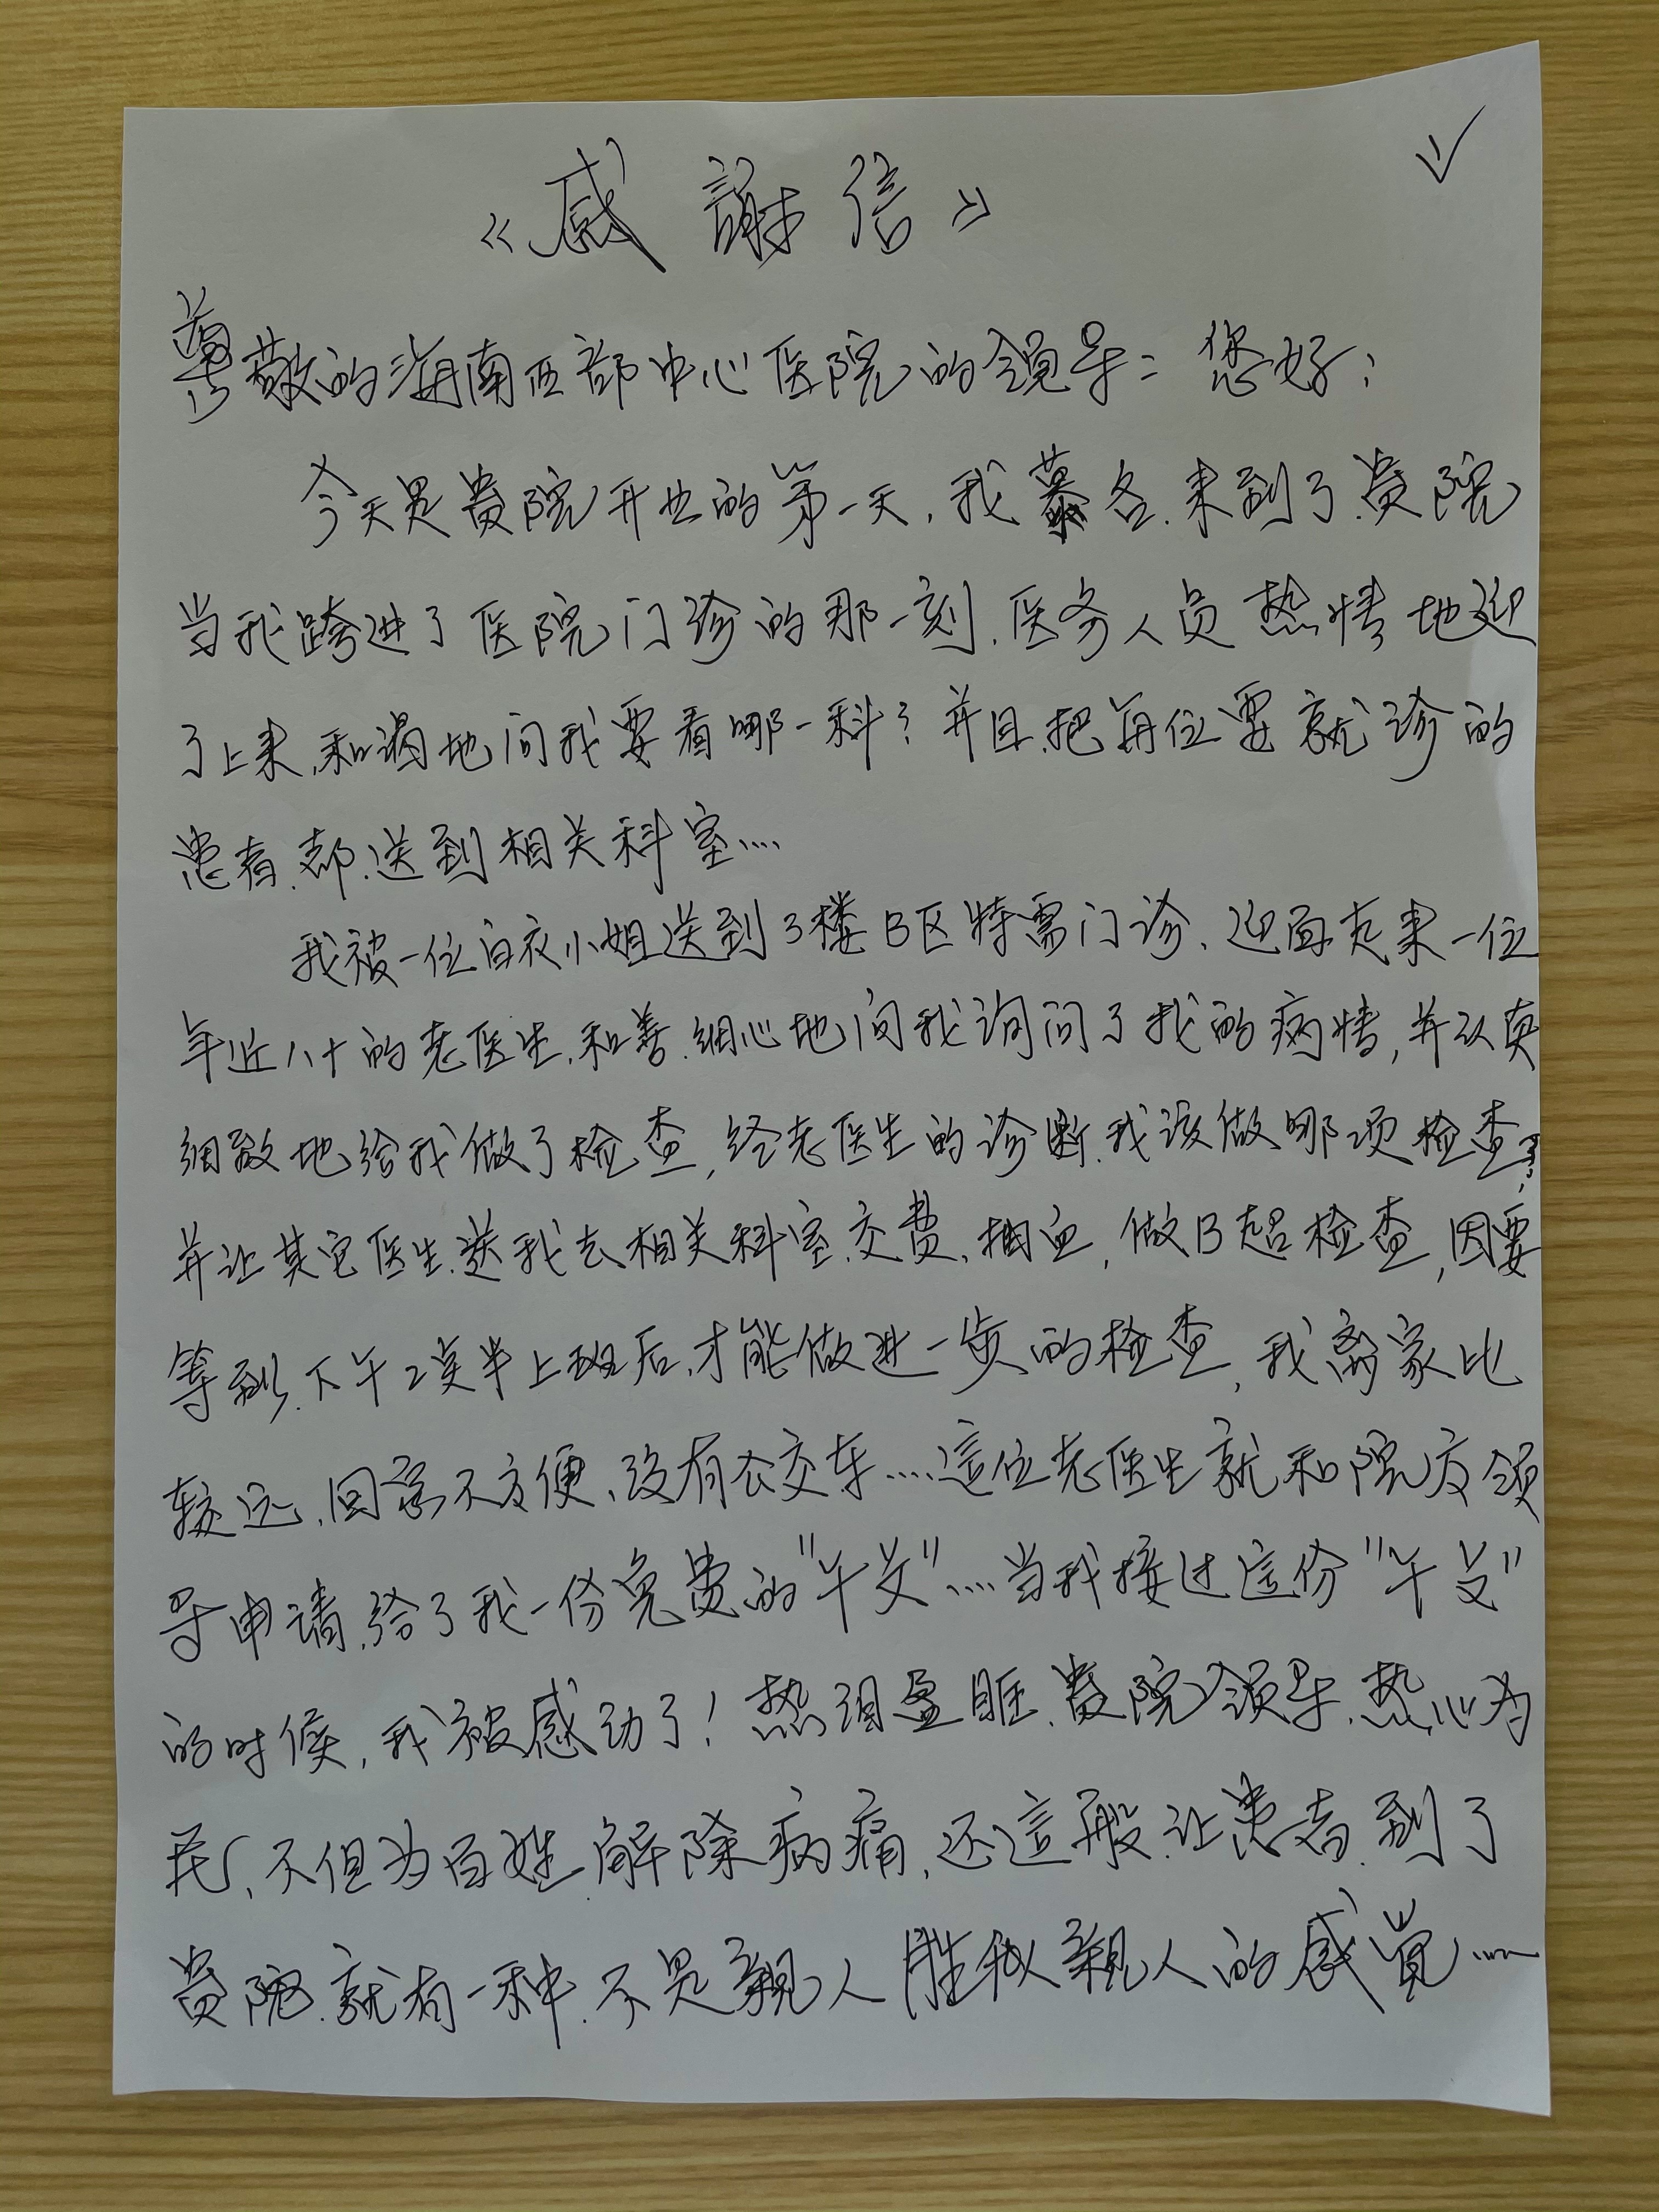 《感謝信》
尊敬的海南西部中心医院的领导：您好：
今天是贵院开业的第一天，我慕名.来到了.贵院
当我跨进了医院门诊的那一刻.医务人员热情地迎
了上来.和谒地问我要看哪一科？并且.把每位要就诊的
患者.都.送到相关科室....
我被一位白衣小姐送到3楼B区特需门诊、迎面走来一位
年近八十的老医生.和善.细心地问我询问了我的病情，并认真
细致地给我做了检查，经老医生的诊断.我该做哪项检查？
并让其它医生.送我去相关科室.交费、抽血，做B超检查，因要
等到.下午2点半上班后.才能做进一步的检查，我离家比
较远.回家不方便、没有公交车....這位老医生就和院方领
导申请.给了我一份免费的"午歺"....当我接过這份"午歺"
的时候，我被感动了！热泪盈眶.贵院领导.热心为
民、不但为百姓.解除病痛，还這般.让患者.到了
贵院.就有一种.不是親人胜似親人的感覚......